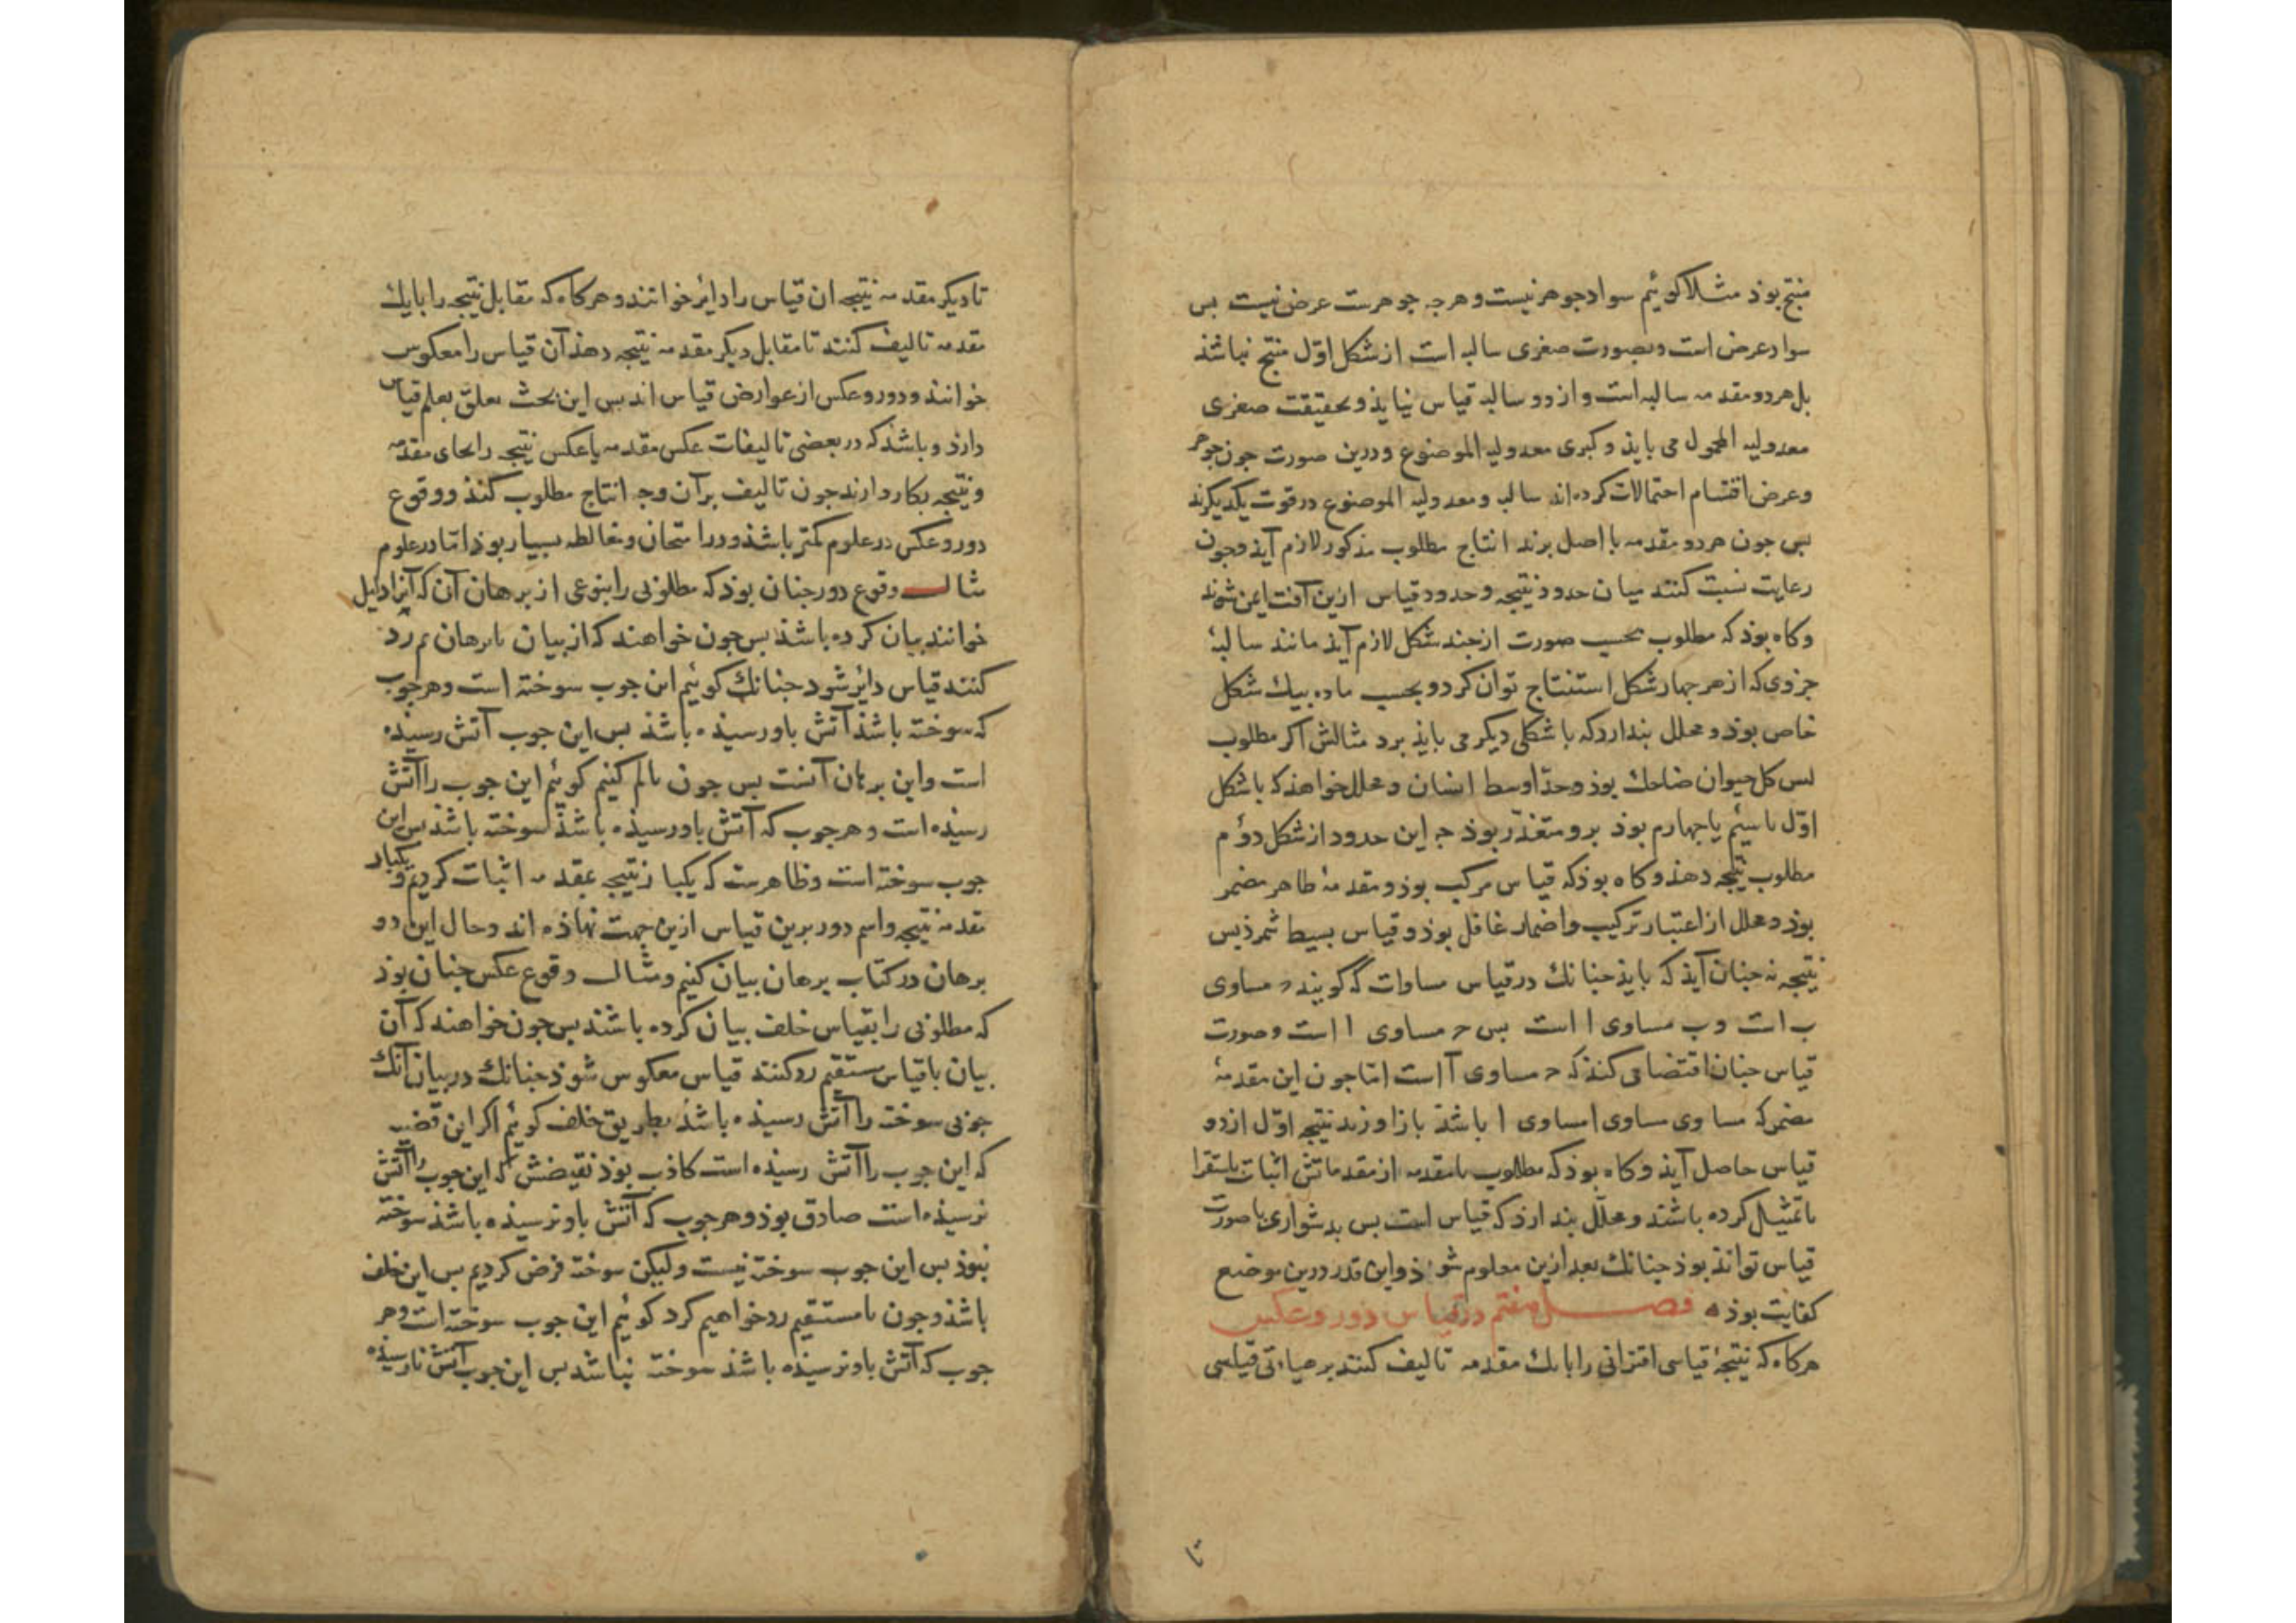 منتج بوذ مثلا کوئیم سواد جوهر نیست و هرجه جوهرست عرض نیست بس
سواد عرض است و بصورت صغری سالبه است از شکل اوّل منتج نباشذ
بل هر دو مقدمه سالبه است و از دو سالبه قیاس نیایذ و بحقیقت صغری
معدولیه المحمول می بایذ و کبری معدولیه الموضوع و درین صورت جون جوهر
و عرض اقتسام احتمالات کرده‌اند سالبه و معدولیه الموضوع در قوت یکدیکرند
بس جون هر دو مقدمه با اصل برند انتاج مطلوب مذکور لازم آیذ و جون
رعایت نسبت کنند میان حدود نتیجه و حدود قیاس ازین آفت ایمن شوند
و کاه بوذ که مطلوب بحسب صورت از جند شکل لازم آیذ مانند سالبهٔ
جزوی که از هر جهار شکل استنتاج توان کرد و بحسب ماده بیك شکل
خاص بوذ و محلل بندارد که با شکلی دیکر می بایذ برد مثالش اکر مطلوب
لیس کل حیوان ضاحك بوذ و حدّ اوسط انسان و محلل خواهذ که با شکل
اوّل یا سیُم یا جهارم بوذ برو متعذّر بوذ جه این حدود از شکل دوُم
مطلوب نتیجه دهذ و کاه بوذ که قیاس مرکب بوذ و مقدمهٔ ظاهر مضمر
بوذ و محلل از اعتبار ترکیب و اضمار غافل بوذ و قیاس بسیط شمرذ بس
نتیجه نه جنان آیذ که بایذ جنانك در قیاس مساوات که کویند ح مساوی
ب است و ب مساوی ا است بس ح مساوی ا است و صورت
قیاس جنان اقتضا می کنذ که ح مساوی آ است امّا جون این مقدمهٔ
مضمر که مساوی مساوی ا مساوی ا باشذ باز اوزند نتیجه اوّل از دو
قیاس حاصل آیذ و کاه بوذ که مطلوب یا مقدمه از مقدماتش اثبات باستقرا
یا تمثیل کرده باشند و محلّل بندارذ که قیاس است بس بدشواری با صورت
قیاس تواند بوذ جنانك بعد ازین معلوم شوذ و این قدر درین موضع
کفایت بوذ ه فصل هفتم در قیاس دور و عکس
هرکاه که نتیجهٔ قیاسی اقترانی را با یك مقدمه تالیف کنند بر هیأتی قیاسی
تا
تا دیکر مقدمه نتیجه ان قیاس را دایر خوانند و هرکاه که مقابل نتیجه را با یك
مقدمه تالیف کنند تا مقابل دیکر مقدمه نتیجه دهذ آن قیاس را معکوس
خوانند و دور و عکس از عوارض قیاس اند بس این بحث تعلق بعلم قیاس
دارذ و باشذ که در بعضی تالیفات عکس مقدمه یا عکس نتیجه را بجای مقدمه
و نتیجه بکار دارند جون تالیف بر آن وجه انتاج مطلوب کنذ و وقوع
دور و عکس در علوم کمتر باشذ و در امتحان و مغالطه بسیار بوذ امّا در علوم
مثال وقوع دور جنان بوذ که مطلوبی را بنوعی از برهان آن که آنرا دلیل
خوانند بیان کرده باشذ بس جون خواهند که از بیان با برهان لم رد
کنند قیاس دایر شود جنانك کوئیم این جوب سوخته است و هر جوب
که سوخته باشذ آتش باو رسیذه باشذ بس این جوب آتش رسیذه
است و این برهان آنست بس جون با لم کنیم کوئیم این جوب را آتش
رسیذه است و هر جوب که آتش باو رسیذه باشذ سوخته باشذ بس این
جوب سوخته است و ظاهرست که یکبار نتیجه بمقدمه اثبات کردیم و یکبار
مقدمه نتیجه و اسم دور برین قیاس ازین جهت نهاذه اند و حال این دو
برهان در کتاب برهان بیان کنیم و مثال وقوع عکس جنان بوذ
که مطلوبی را بقیاس خلف بیان کرده باشند بس جون خواهند که آن
بیان با قیاس مستقیم رد کنند قیاس معکوس شوذ جنانك در بیان آنك
جوبی سوخته را آتش رسیذه باشذ بطریق خلف کوئیم اکر این قضیه
که این جوب را آتش رسیذه است کاذب بوذ نقیضش که این جوب را آتش
نرسیذه است صادق بوذ و هر جوب که آتش باو نرسیذه باشذ سوخته
نبوذ بس این جوب سوخته نیست ولیکن سوخته فرض کردیم بس این خلف
باشذ و جون با مستقیم رد خواهیم کرد کوئیم این جوب سوخته است و هر
جوب که آتش باو نرسیذه باشذ سوخته نباشد بس این جوب آتش نارسیذه